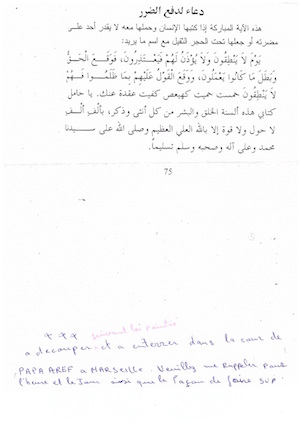 دعاء لدفع الضرر
هذه الآية المباركة إذا كتبها الإنسان وحملها معه لا يقدر أحد على
مضرته أو جعلها تحت الحجر الثقيل مع اسم ما يريد:
يَوْمَ لاَ يَنْطِقُونَ وَلاَ يُؤْذَنُ لَهُمْ فَيَعْتَذِرُونَ، فَوَقَعَ الْحَقُّ
وَبَطَلَ مَا كَانُوا يَعْمَلُونَ، وَوَقَعَ الْقَوْلُ عَلَيْهِمْ بِمَا ظَلَمُوا فَهُمْ
لاَ يَنْطِقُونَ خمست حميت كهيعص كفيت عقدة عنك. يا حامل
كتابي هذه ألسنة الخلق والبشر من كل أنثى وذكر، بألْفِ ألْفِ
لا حول ولا قوة إلا بالله العلي العظيم وصلى الله على سيدنا
محمد وعلى آله وصحبه وسلم تسليماً.
75
*** suivant les
a decouper et a enterrer dans la cour de
PAPA AREF a MARSEILLE. Veuillez me rappeler pour
l'heure et le Jour ainsi que la façon de faire SVP.